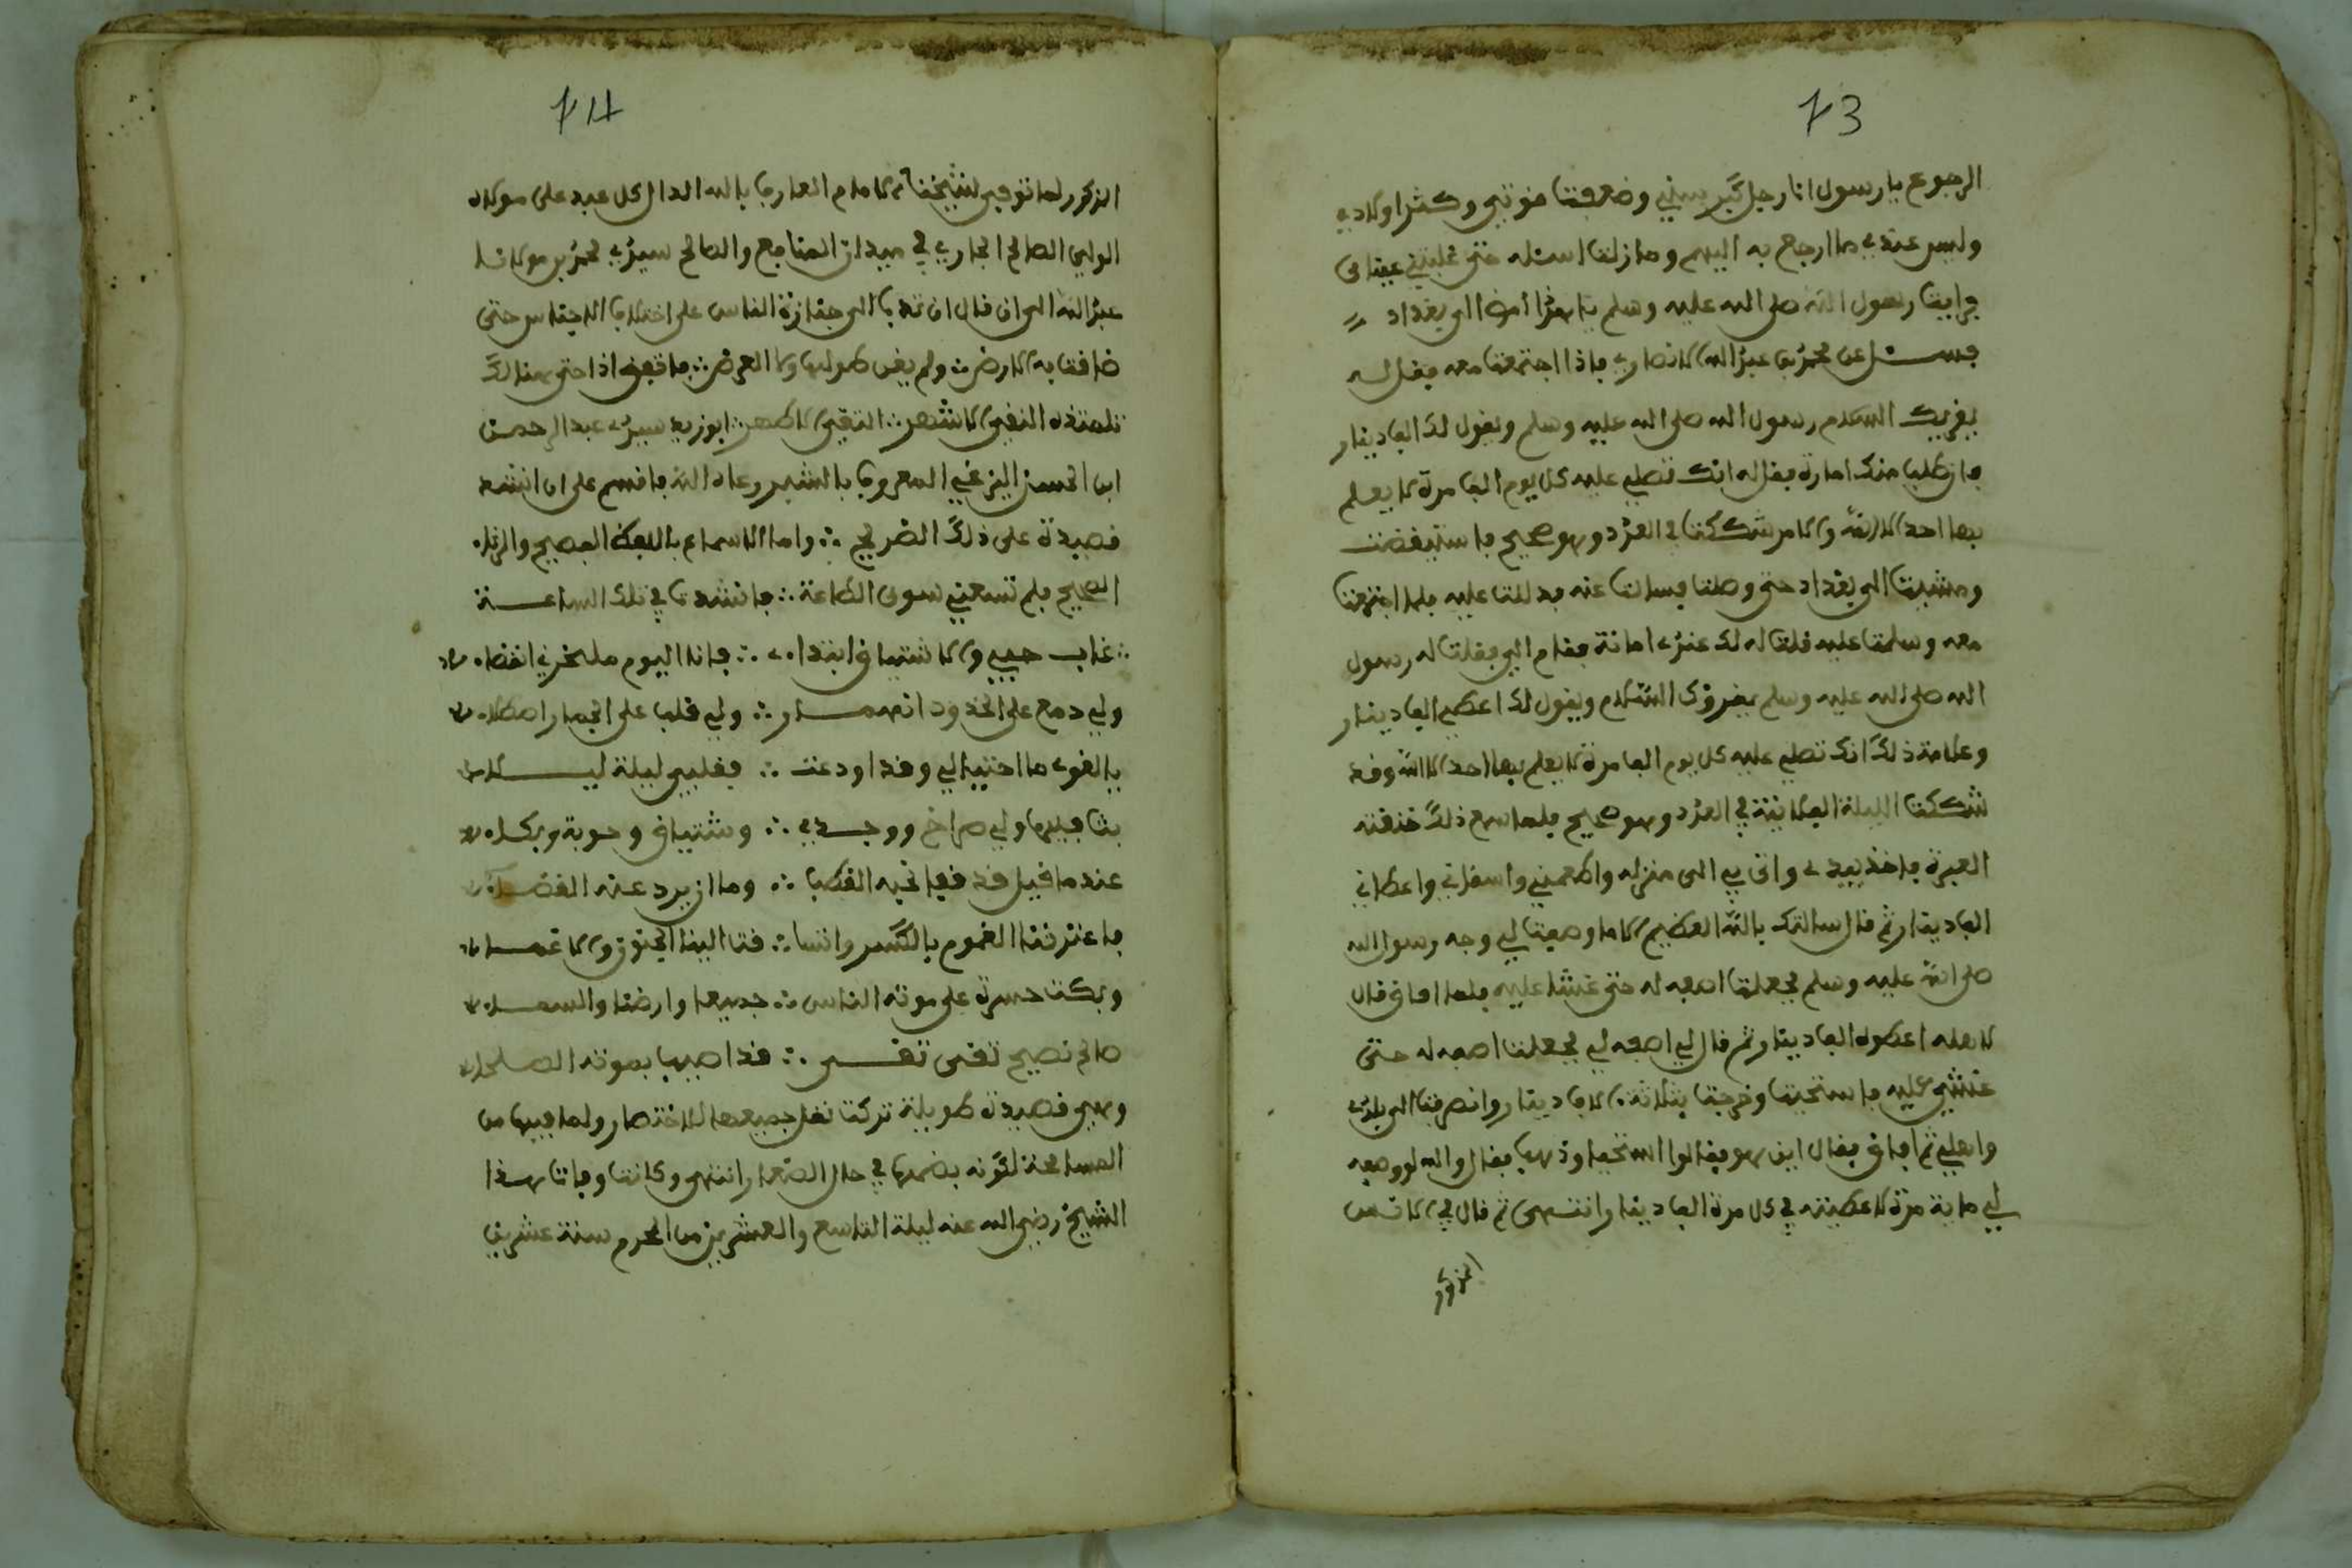 73
الرجوع يا رسول انا رجل كبر سني وضعفت قوتي وكثر اولادي
وليس عندي ما ارجع به اليهم وما زلت اسئله حتى غلبتني عيناي
فرايت رسول الله صلى الله عليه وسلم يا هذا امض الى بغداد
فسئل عن محمد بن عبد الله الانصاري فاذا اجتمعت معه فقل له
يقريك السلام رسول الله صلى الله عليه وسلم ويقول لك الف دينار
فان طلب منك امارة فقل له انك تصلي عليه كل يوم الف مرة لا يعلم
بها احد الا الله والامر شككت في العدد وهو صحيح فاستيقضت
ومشيت الى بغداد حتى وصلت فسالت عنه فدللت عليه فلما اجتمعت
معه وسلمت عليه قلت له لك عندي امانة فقام الي فقلت له رسول
الله صلى الله عليه وسلم يقرؤك السلام ويقول لك اعطيه الف دينار
وعلامة ذلك انك تصلي عليه كل يوم الف مرة لا يعلم بها احد الا الله وقد
شككت الليلة الفلانية في العدد وهو صحيح فلما سمع ذلك خنقته
العبرة فاخذ بيدي واتى بي الى منزله واطعمني واسقاني واعطاني
الف دينار ثم قال سالتك بالله العظيم الا ما وصفت لي وجه رسول الله
صلى الله عليه وسلم فجعلت اصفه له حتى غشا عليه فلما افاق قال
لاهله اعطوه الف دينار ثم قال لي اصفه لي فجعلت اصفه له حتى
غشي عليه فاستحيت وخرجت بثلاثة الاف دينار وانصرفت الى بلدي
واهلي ثم افاق فقال اين هو فقالوا استحيا وذهب فقال والله لو وصفه
لي ماية مرة لاعطيته في كل مرة الف دينار انتهى ثم قال في الانس
المذكور
74
المذكور ولما توفي شيخنا الامام العارف بالله الدال كل عبد على مولاه
الولي الصالح الجاري في ميدان المنافع والصالح سيدي محمد بن مولانا
عبد الله الى ان قال ان تداب الى جنازة الناس على اختلاف الاجناس حتى
ضاقت به الارض ولم يغن طولها ولا العرض فاتفق اذا حتى هنالك
تلميذه النقي الاشهر التقي الاطهر ابو زيد سيدي عبد الرحمن
ابن الحسن اليزغي المعروف بالشبير رعاه الله فاقسم على ان انشد
قصيدة على ذلك الضريح واما الاسماع باللفظ الفصيح والرثاء
الصحيح فلم تسعني سوى الطاعة فانشدت في تلك الساعة
غاب حبيبي والاشتياق ابتداءي فانا اليوم ملخزني انقضاء
ولي دمع على الخدود انهمار ولي قلب على الجمار اصطلاء
يا لقوى ما احتيالي وقد اودعت فقلبي ليلة ليلاء
بت فيها ولي صراخ ووجدي وشتياق وحوبة وبكاء
عند ما قيل قد قضا نحبه القطب وما ان يرد عنه القضاء
فاعترتنا الغموم بالكسر وانتسا فت الينا الحتوف والاغماء
وبكت حسرة على موته الناس جميعا وارضنا والسماء
صالح نصيح تقى تقي قد اصيبا بموته الصلحاء
وهي قصيدة طويلة تركت نقل جميعها للاختصار ولما فيها من
المسامحة لكونه نضمها في حال الصغار انتهى وكانت وفات هذا
الشيخ رضي الله عنه ليلة التاسع والعشرين من المحرم سنة عشرين